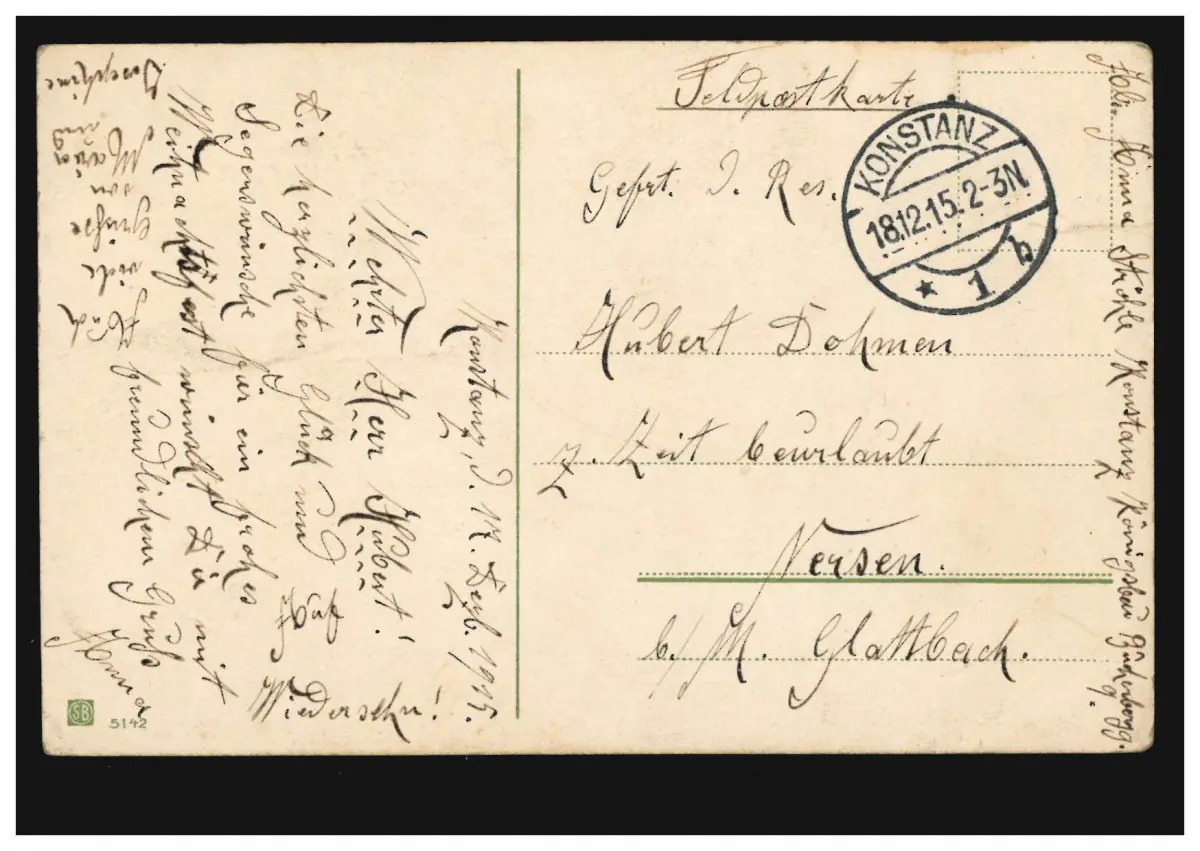 Feldpostkarte
Gefrt. d. Res.
Hubert Dohmen
z. Zeit beurlaubt
Nersen.
b./M. Glattbach.
KONSTANZ
18.12.15. 2-3N.
* 1 b
Abs. Anna Stähle Konstanz Königsbau
Konstanz, d. 17. Dezb. 1915.
Werter Herr Hubert!
Die herzlichsten Glück und
Segenswünsche für ein frohes
Weihnachtsfest wünscht Dir mit
freundlichem Gruß
Anna
Auf
Wiedersehn!
Auch
viele
Grüße
von
Maria
und
Josephine
SB
5142